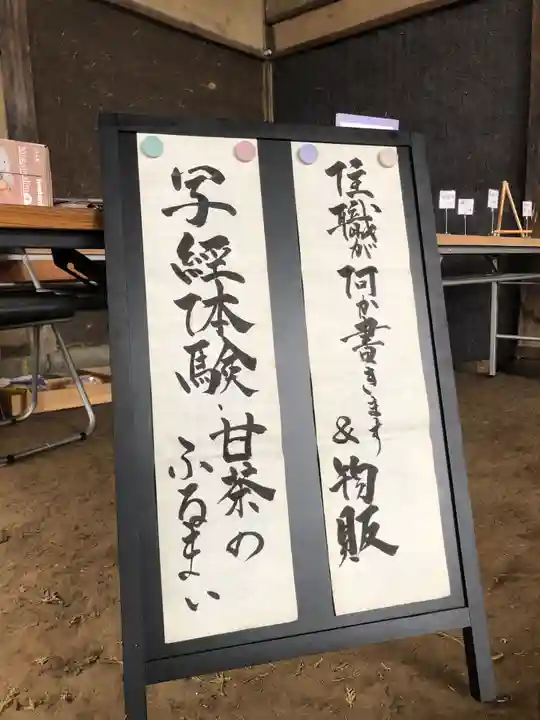 住職が何か書きます
& 物販
写経体験・甘茶の
ふるまい